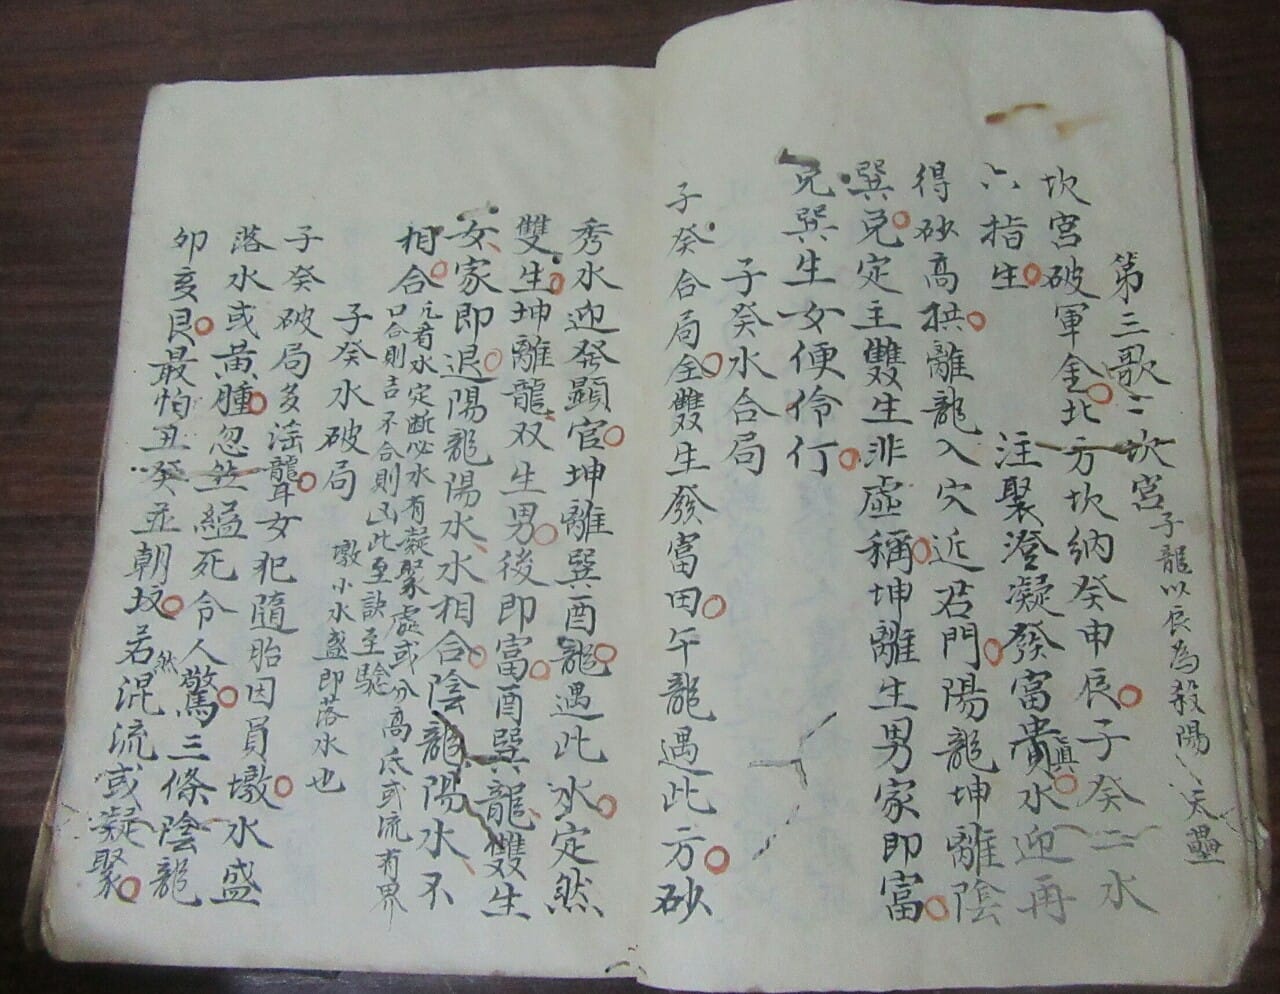 第三歌 坎宮子龍以辰為殺陽天
坎宮破軍金北方坎納癸申辰子癸二水
六指生 注聚澄凝發富貴真水迎再
得砂高拱離龍入穴近君門陽龍坤離陰
巽兌定主雙生非虛稱坤離生男家即富
兌巽生女便伶仃
子癸水合局
子癸合局全雙生發富田午龍遇此方砂
秀水迎發顯官坤離巽酉龍遇此水定然
雙生坤離龍双生男後即富酉巽龍雙生
女家即退陽龍陽水水相合陰龍陽水不
相合凡看水定斷必水有凝聚處或分高底或流有界
口合則吉不合則凶此至訣至驗
子癸水破局 墩小水盛即落水也
子癸破局多淫聾女犯隨胎因員墩水盛
落水或黃腫忽然縊死令人驚三條陰龍
卯亥艮最怕丑癸並朝坟若然混流或凝聚